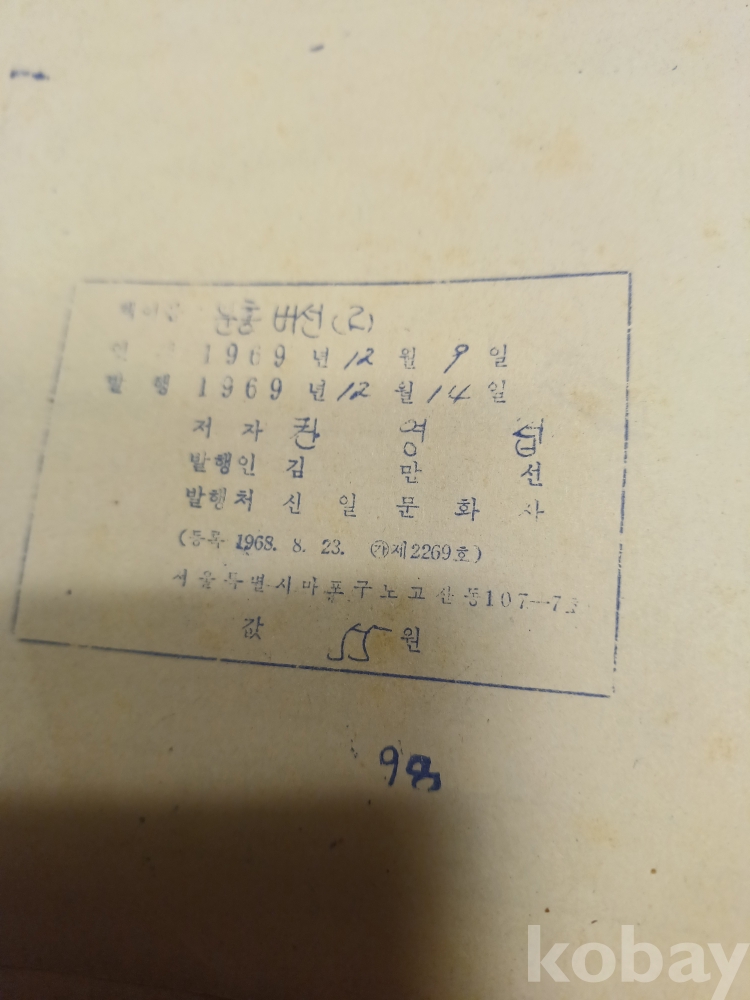 버선(2)
1969년 12월 9일
발행 1969년 12월 14일
저자 영 섭
발행인 김 만 선
발행처 신 일 문 화 사
(등록 1968. 8. 23. ㉮제2269호)
서울특별시마포구노고산동107—7
값 55원
kobay